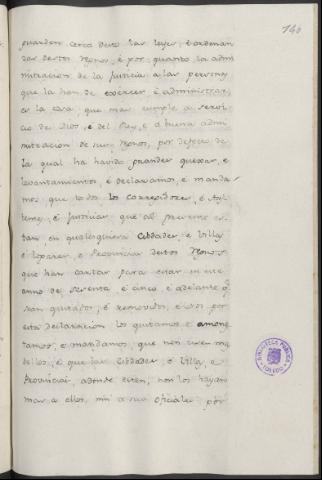 140
guarden cerca desto las leyes, é ordenan
zas destos Reynos, é por quanto la admi
nistracion de la Justicia a las personas
que la han de exercer é administrar,
es la cosa, que mas cumple a servi
cio de Dios, é del Rey, é á buena admi
nistracion de sus Reynos, por defecto de
la qual ha havido grandes quexas, e
levantamientos, é declaramos, e manda
mos, que todos los Corregidores, é Asis
tentes, é Justicias, que al presente es
tan en qualesquiera Cibdades, é Villas
é logares, é Provincias destos Reynos
que han
para
en este
anno de sesenta é cinco, é adelante q.
sean quitados, é removidos, é nos por
esta declaracion los quitamos é amone
tamos, é mandamos, que non usen mas
dellos, é que las Cibdades, é Villas, e
Provincias, adonde estén, non los hayan
mas a ellos, nin a sus oficiales por
BIBLIOTECA PUBLICA
TOLEDO